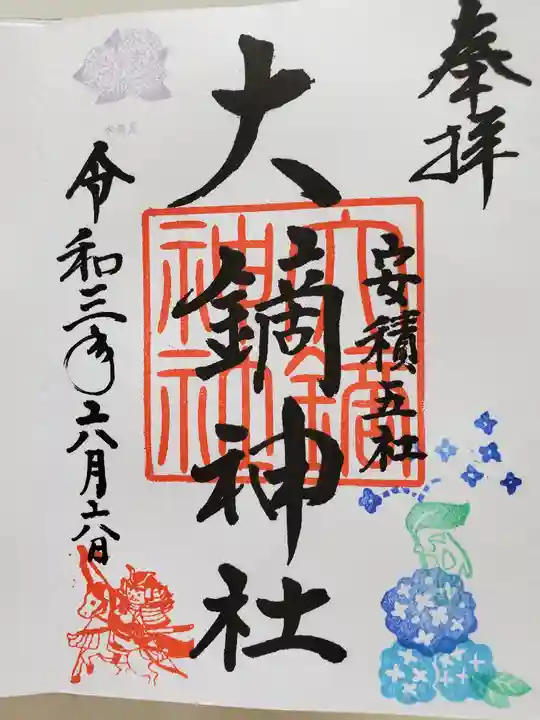 奉拝
安積五社
大鏑神社
大鏑神社
令和三年六月六日